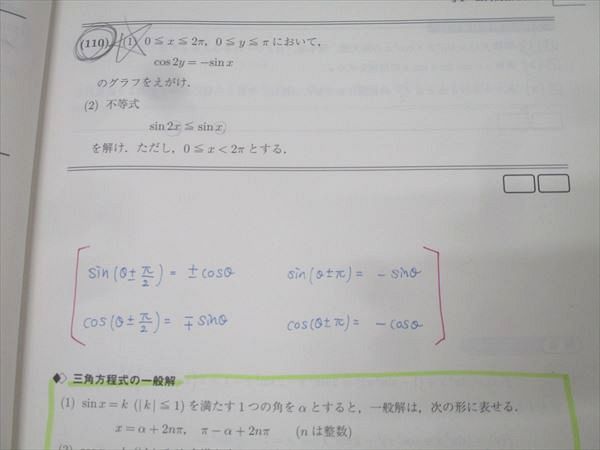 (110) (1) 0≦x≦2π, 0≦y≦πにおいて,
cos2y=−sinx
のグラフをえがけ.
(2) 不等式
sin2x≦sinx
を解け. ただし, 0≦x<2πとする.
sin(θ±π/2)= ±cosθ sin(θ±π)= −sinθ
cos(θ±π/2)= ∓sinθ cos(θ±π)= −cosθ
◆◇ 三角方程式の一般解
(1) sinx=k (|k|≦1)を満たす1つの角をαとすると, 一般解は, 次の形に表せる.
x=α+2nπ, π−α+2nπ (nは整数)